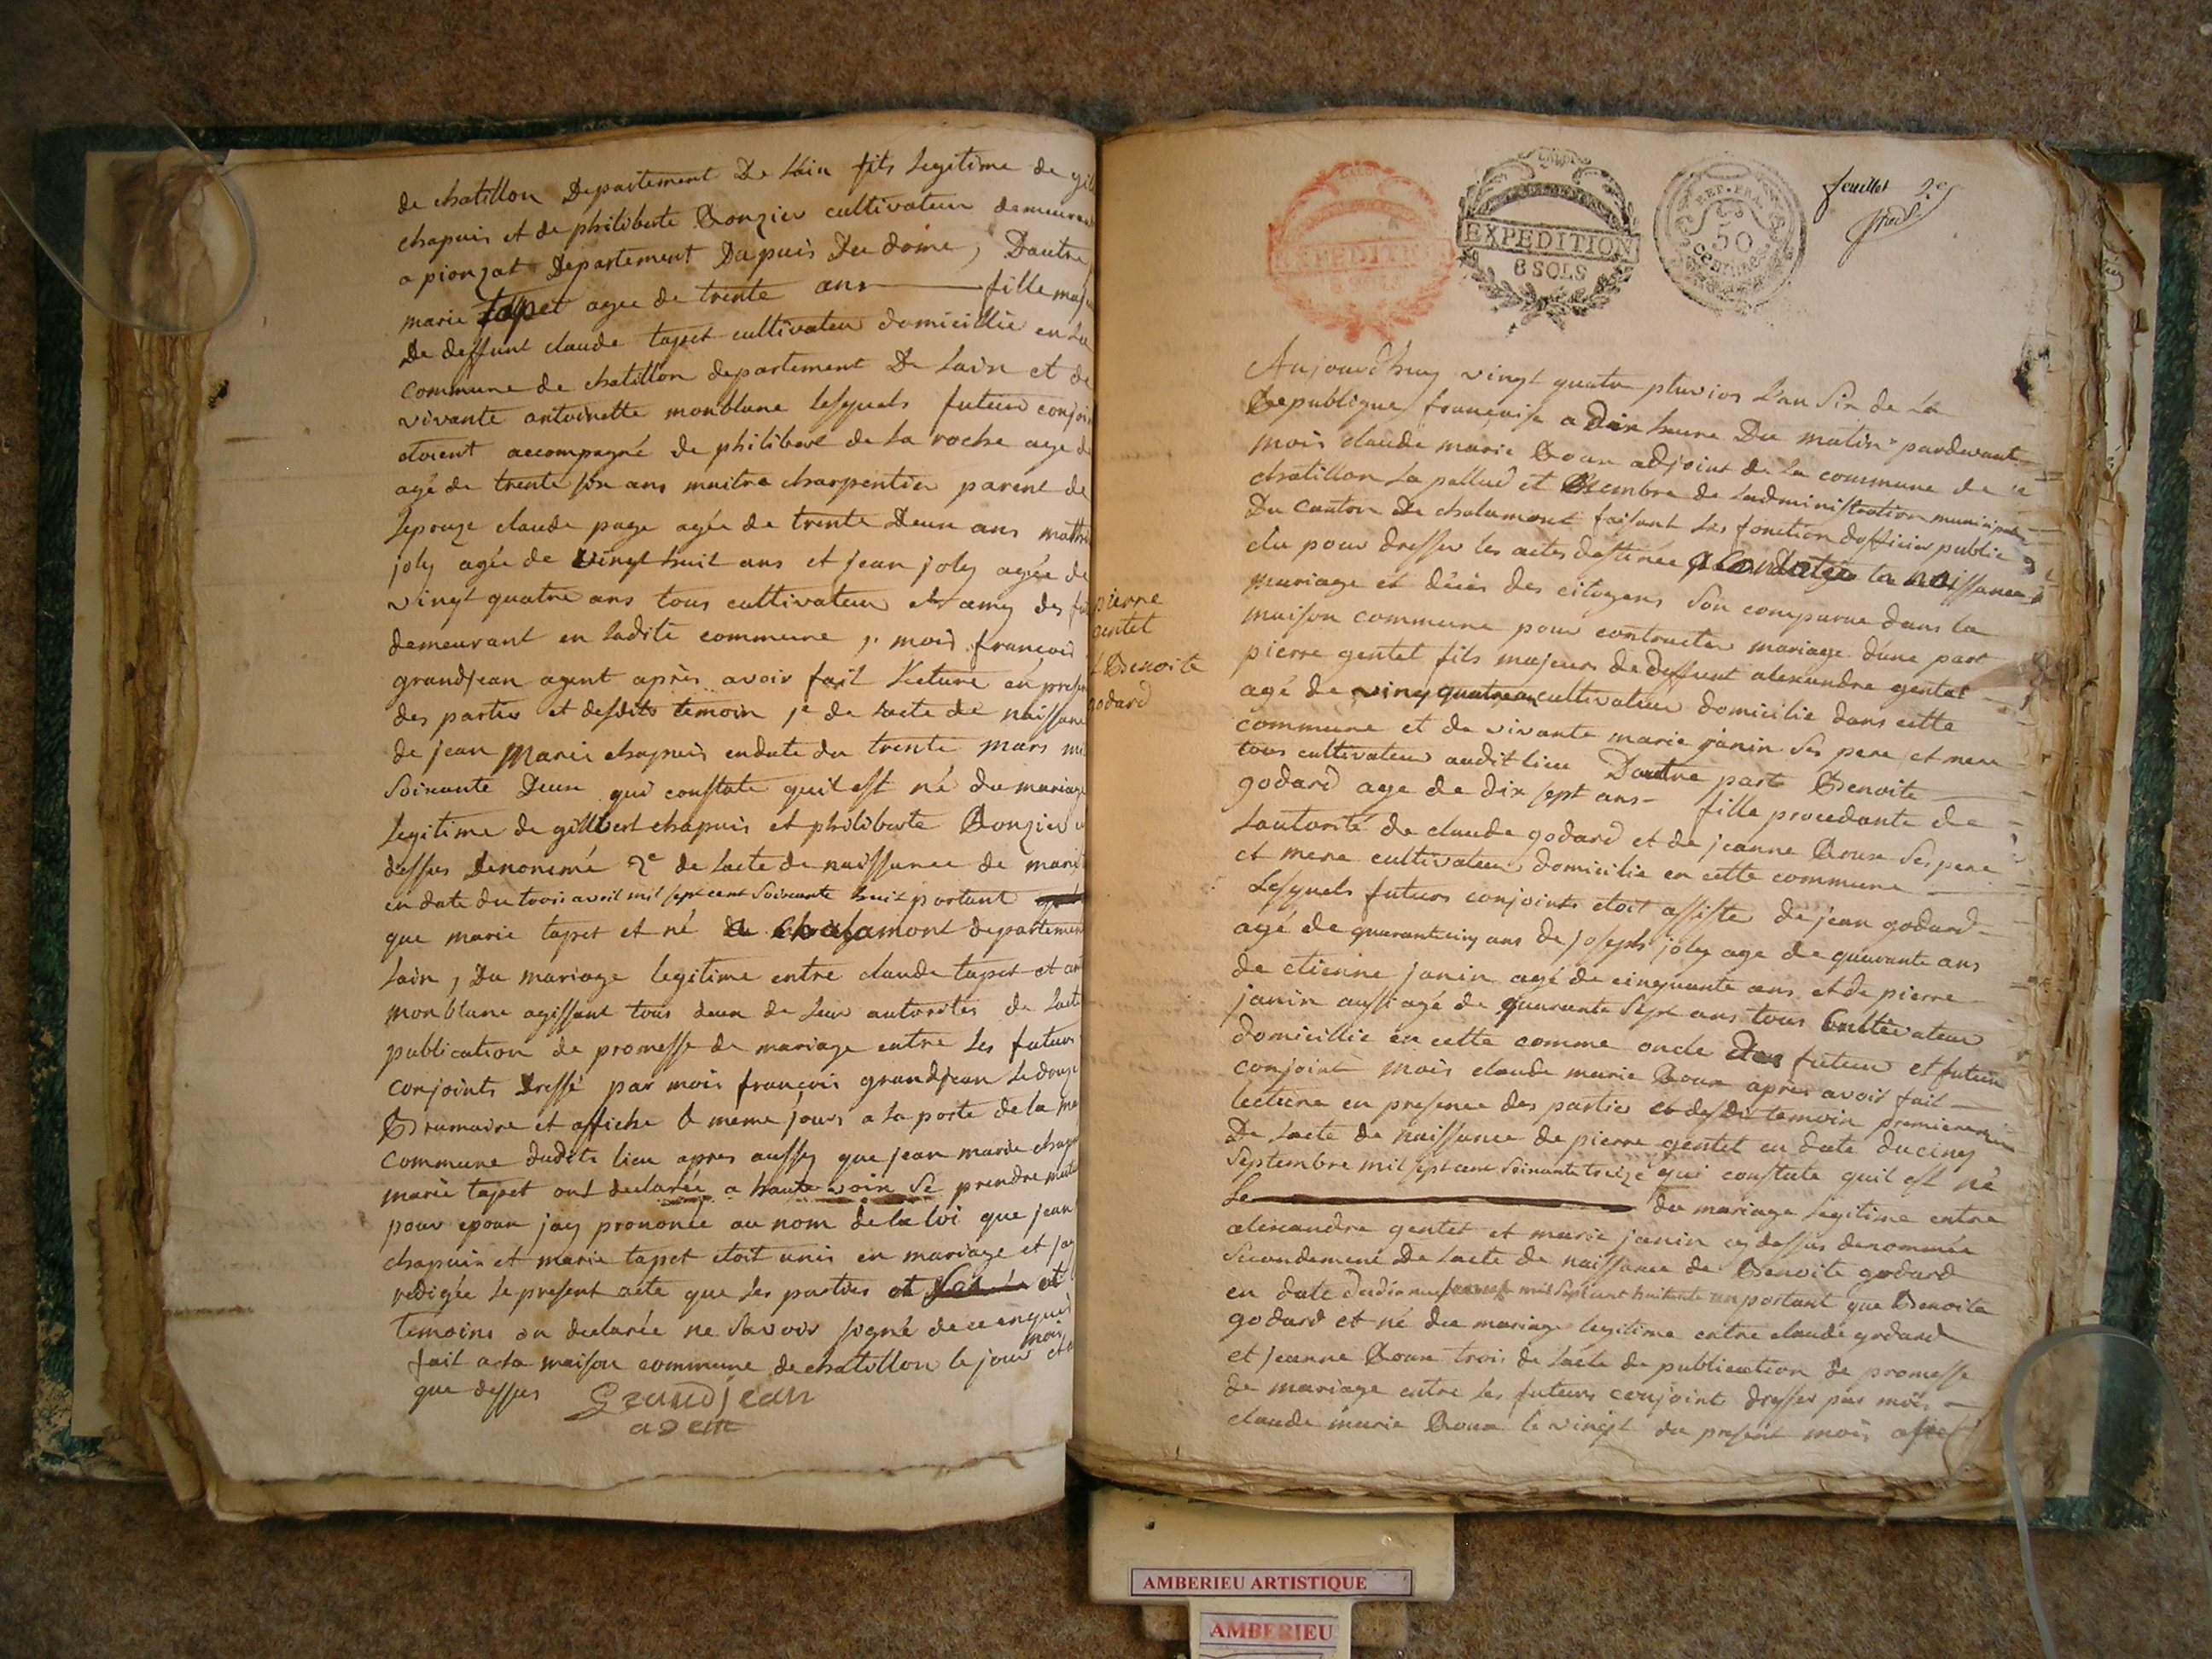 de chatillon Departement De Lain fils legitime de
chapuis et de philiberte Bonzier cultivateur demeurant
a pionzat Departement Dupuis Du dome, Dautre
marie tapet agee de trente ans fille
De deffunt claude tapet cultivateur domicillié en La
commune de chatillon departement De Lain et de
vivante antoinette monblanc lesquels futeur
etoient accompagné de philibert de la roche age de
agé de trente six ans maitre charpentier parent de
Lepouze claude page agée de trente Deux ans
joly agée de vingt huit ans et jean joly agée de
vingt quatre ans tous cultivateur et amy des
demeurant en ladite commune, mois francois
grandjean agent après avoir fait Lecture en
des parties et desdits temoin 1e de lacte de
de jean Marie chapuis endate du trente mars
Soixante Deux qui constate quil est né du mariage
Legitime de gilbert chapuis et philiberte Bonzier
dessus Denonmé 2e de lacte de naissance de marie
en date du trois avril mil sept cent Soixante huit portant
que marie tapet et né a Chalamont departement
Lain, Du mariage legitime entre claude tapet et
monblanc agissant tous deux de leur autorités de Lacte
publication de promesse de mariage entre les futurs
conjoints dressé par mois francois grandjean Le douze
Brumaire et affiché le meme jours a la porte de la
commune dudits lieu apres aussy que jean marie
marie tapet ont declarée a haute voix Se prendre
pour epoux jay prononcé au nom de la loi que jean
chapuis et marie tapet etoit unis en mariage et jay
redigée le present acte que les parties et
temoins on declarée ne Savoir signé de ce enquis
fait a la maison commune de chatillon le jour mois et
que dessus
Grandjean
agent
feuillet 2e
EXPEDITION
8 SOLS
EXPEDITION
8 SOLS
REP. FRA.
50
centimes
pierre
gentet
Benoite
godard
Aujourdhuy vingt quatre pluvios Lan Six de La
Republique française a Dix heure Du matin pardevant
mois claude marie Roux adjoint de la commune de
chatillon la pallud et Membre de Ladministration municipale
Du Canton De chalamont faisant les fonction dofficier public
elu pour dresser les actes destinée a Constater la naissance
mariage et décès des citoyens Son comparue dans la
maison commune pour contracter mariage dune part
pierre gentet fils majeur de deffunt alexandre gentet
agé de ving quatre ans cultivateur domicilié dans cette
commune et de vivante marie janin Ses pere et mere
tous cultivateur audit lieu Dautre part Benoite
godard age de dix sept ans fille procedante de
Lautorité de claude godard et de jeanne Roux Ses pere
et mere cultivateur domicilie en cette commune
Lesquels futurs conjoints etoit assiste de jean godard
agé de quarante cinq ans de joseph joly age de quarante ans
de etienne janin agé de cinquante ans et de pierre
janin aussi agé de quarante Sept ans tous Cultivateur
domicillie en cette comme oncle des futeur et future
conjoint mois claude marie Roux apres avoir fait
lecture en presence des parties et desdit temoin premierement
De Lacte de naissance de pierre gentet en date du cinq
Septembre mil sept cent Soixante treize qui constate quil est né
Le du mariage legitime entre
alexandre gentet et marie janin cy dessus denommée
Secondement De Lacte de naissance de Benoite godard
en date du dix neuf mil sept cent huitante un portant que Benoite
godard et né du mariage legitime entre claude godard
et jeanne Roux trois de Lacte de publication de promesse
de mariage entre les futeurs conjoint dresser par mois
claude marie Roux le vingt du present mois
AMBERIEU ARTISTIQUE
AMBERIEU